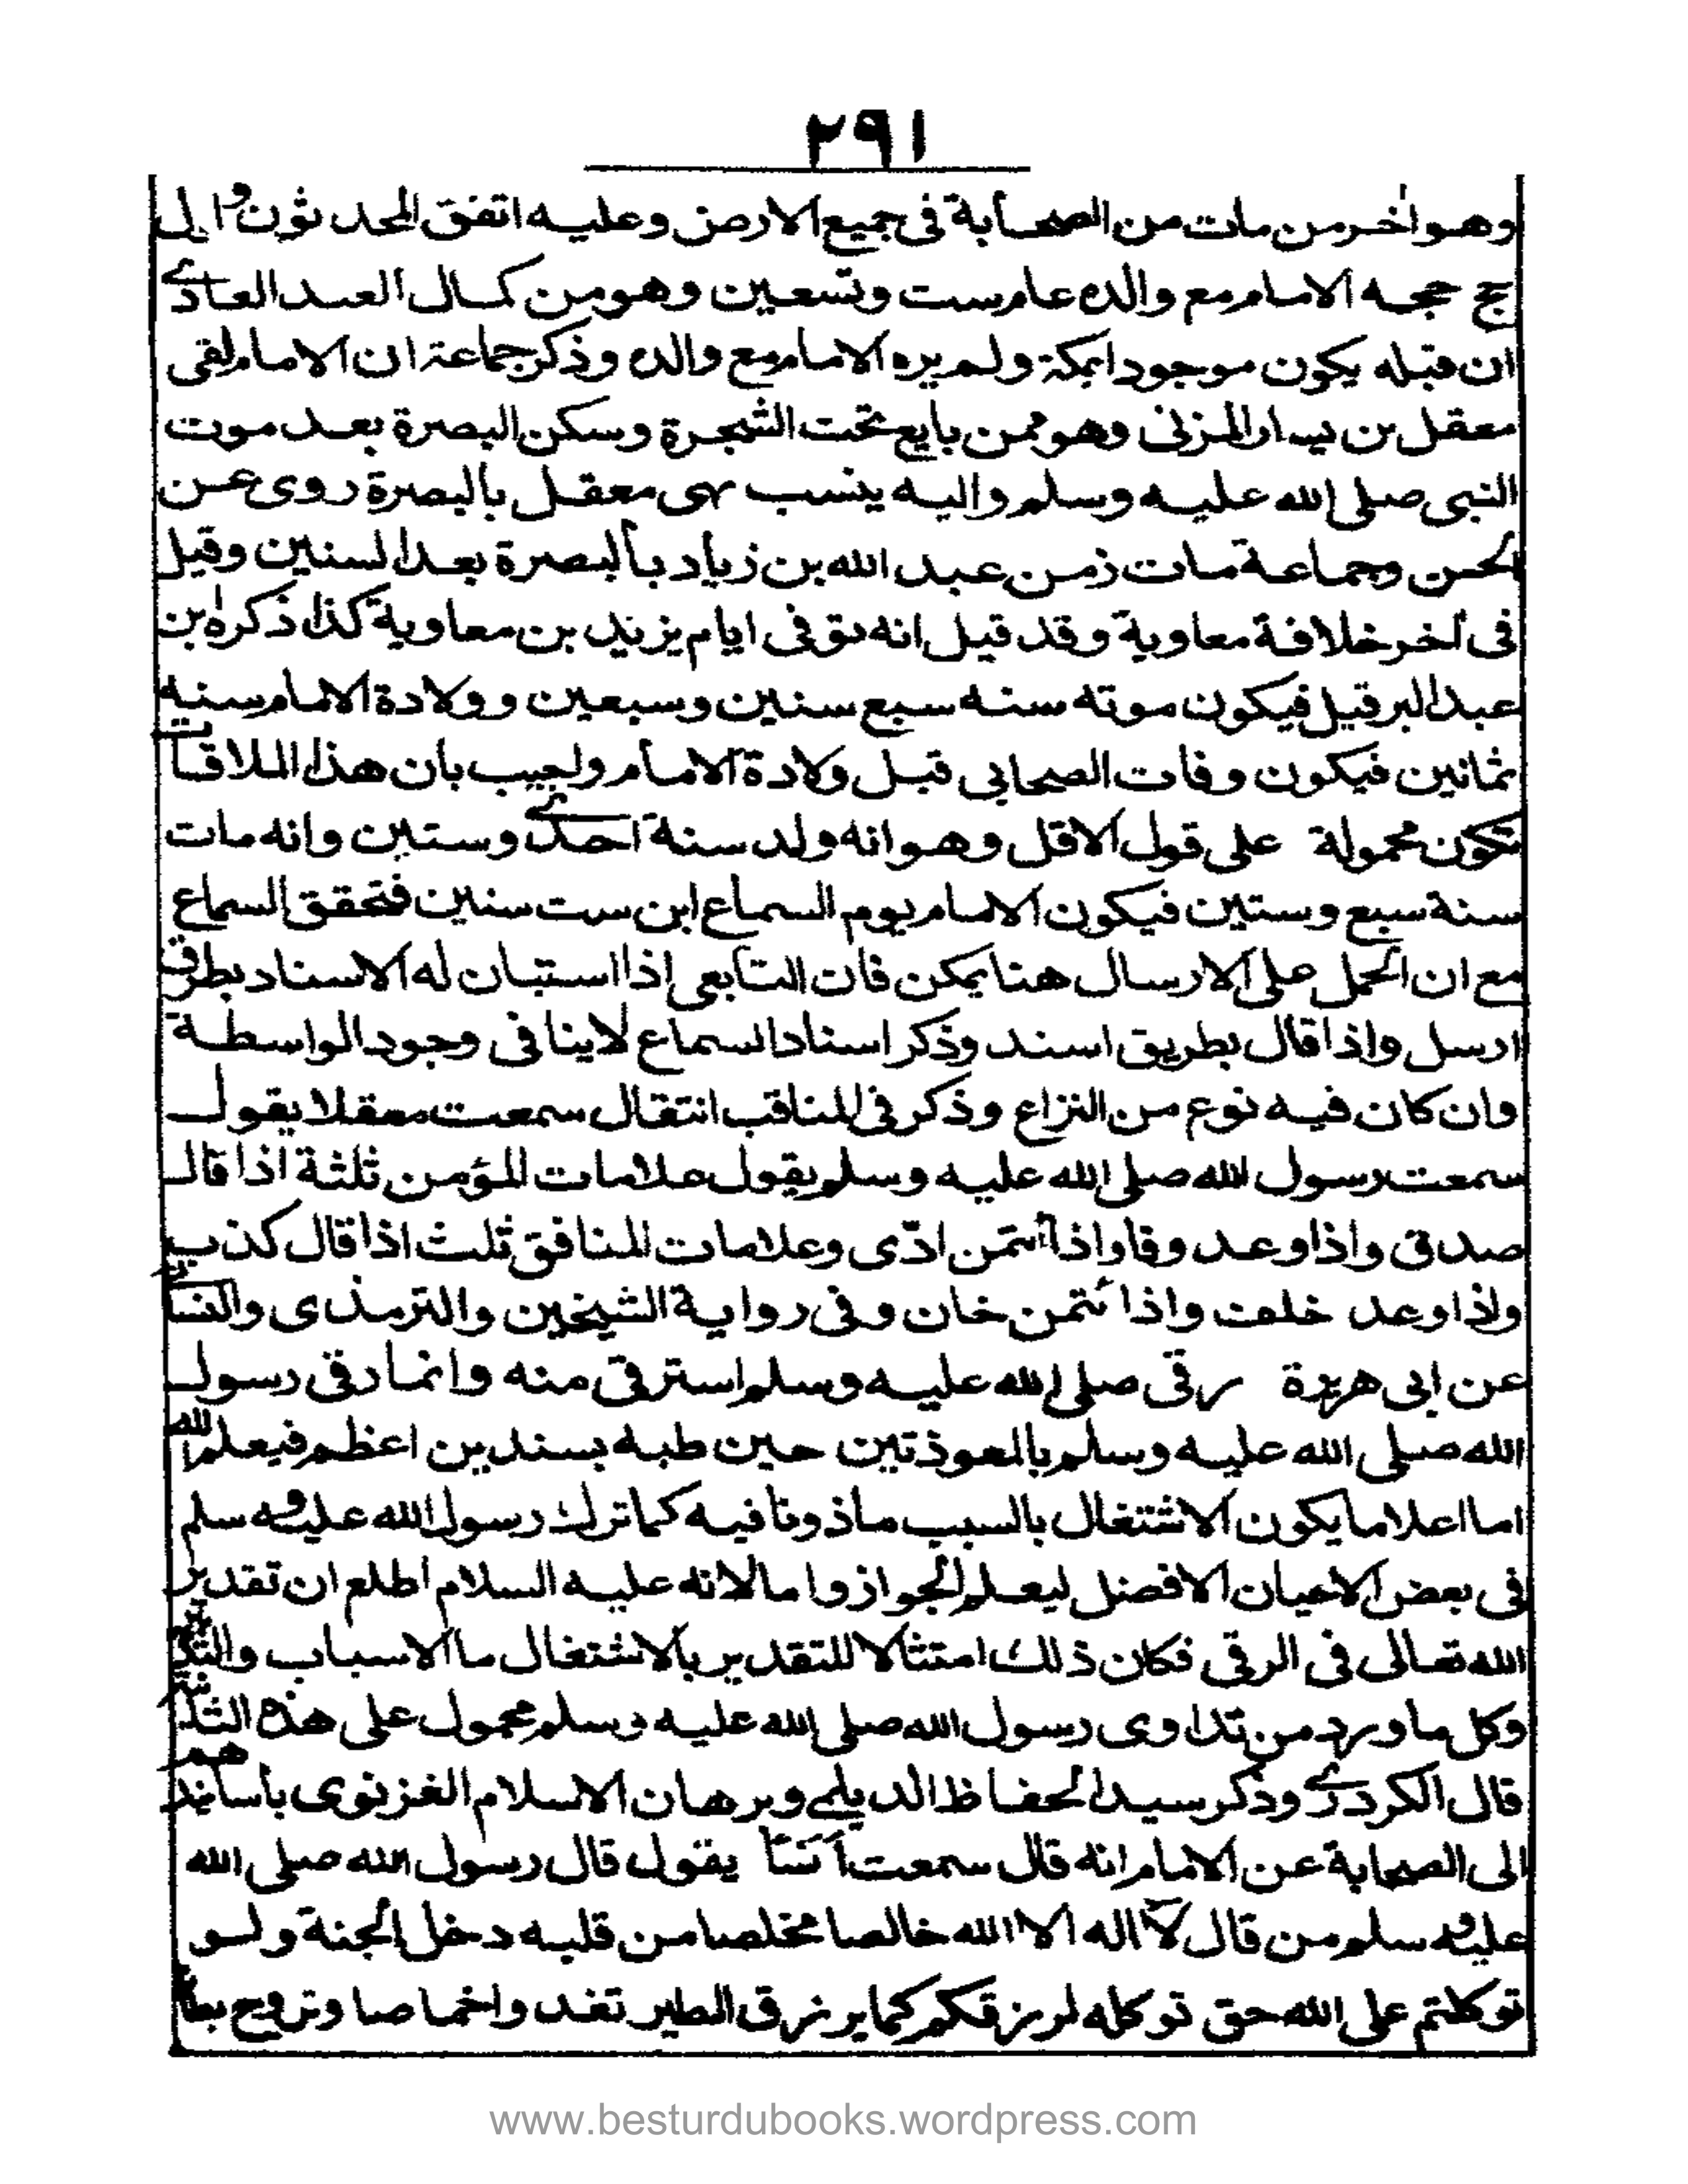 ٢٩١
وهو اٰخر من مات من الصحابة فى جميع الارض وعليه اتفق المحدثون و الى
حج حجه الامام مع والده عام ست وتسعين وهو من كمال العبد العادے
ان قبله يكون موجودا بمكة ولم يره الامام مع والده وذكر جماعة ان الامام لقى
معقل بن يسار المزنى وهو ممن بايع تحت الشجرة وسكن البصرة بعد موت
النبى صلى الله عليه وسلم واليه ينسب نهى معقل بالبصرة روى عن
الحسن وجماعة مات زمن عبد الله بن زياد بالبصرة بعد السنين وقيل
فى اٰخر خلافة معاوية وقد قيل انه توفى ايام يزيد بن معاوية كذا ذكره ابن
عبد البر قيل فيكون موته سنه سبع سنين وسبعين وولادة الامام سنه
ثمانين فيكون وفات الصحابى قبل ولادة الامام واجيب بان هذا الملاقات
تكون محمولة على قول الاقل وهو انه ولد سنة احدے وستين وانه مات
سنة سبع وستين فيكون الامام يوم السماع ابن ست سنين فتحقق السماع
مع ان الحمل على الارسال هنا يمكن فان التابعى اذا استبان له الاسناد بطرق
ارسل واذا قال بطريق اسند وذكر اسناد السماع لاينافى وجود الواسطة
وان كان فيه نوع من النزاع وذكر فى المناقب انتقال سمعت معقلا يقول
سمعت رسول الله صلى الله عليه وسلم يقول علامات المؤمن ثلثة اذا قال
صدق واذا وعد وفا واذا أتمن ادّى وعلامات المنافق ثلث اذا قال كذب
واذا وعد خلف واذا ئتمن خان وفى رواية الشيخين والترمذى والنسا
عن ابى هريرة رقى صلى الله عليه وسلم استرقى منه وانما رقى رسول
الله صلى الله عليه وسلم بالمعوذتين حين طبه بسندين اعظم فيعلم الله
اما اعلاما يكون الاشتغال بالسبب ماذونا فيه كما ترك رسول الله عليه وسلم
فى بعض الاحيان الافضل ليعلم الجواز واما لانه عليه السلام اطلع ان تقدير
الله تعالى فى الرقى فكان ذلك امتثالا للتقدير بالاشتغال ما الاسباب والتدبير
وكل ما ورد من تداوى رسول الله صلى الله عليه وسلم محمول على هذه
قال الكردرے وذكر سيد الحفاظ الديلمے وبرهان الاسلام الغزنوى باسانيدهم
الى الصحابة عن الامام انه قال سمعت أنسًا يقول قال رسول الله صلى الله
عليه وسلم من قال لآ اله الا الله خالصا مخلصا من قلبه دخل الجنة ولو
توكلتم على الله حق توكله لرزقكم كما يرزق الطير تغدوا خماصا وتروح بطا
www.besturdubooks.wordpress.com